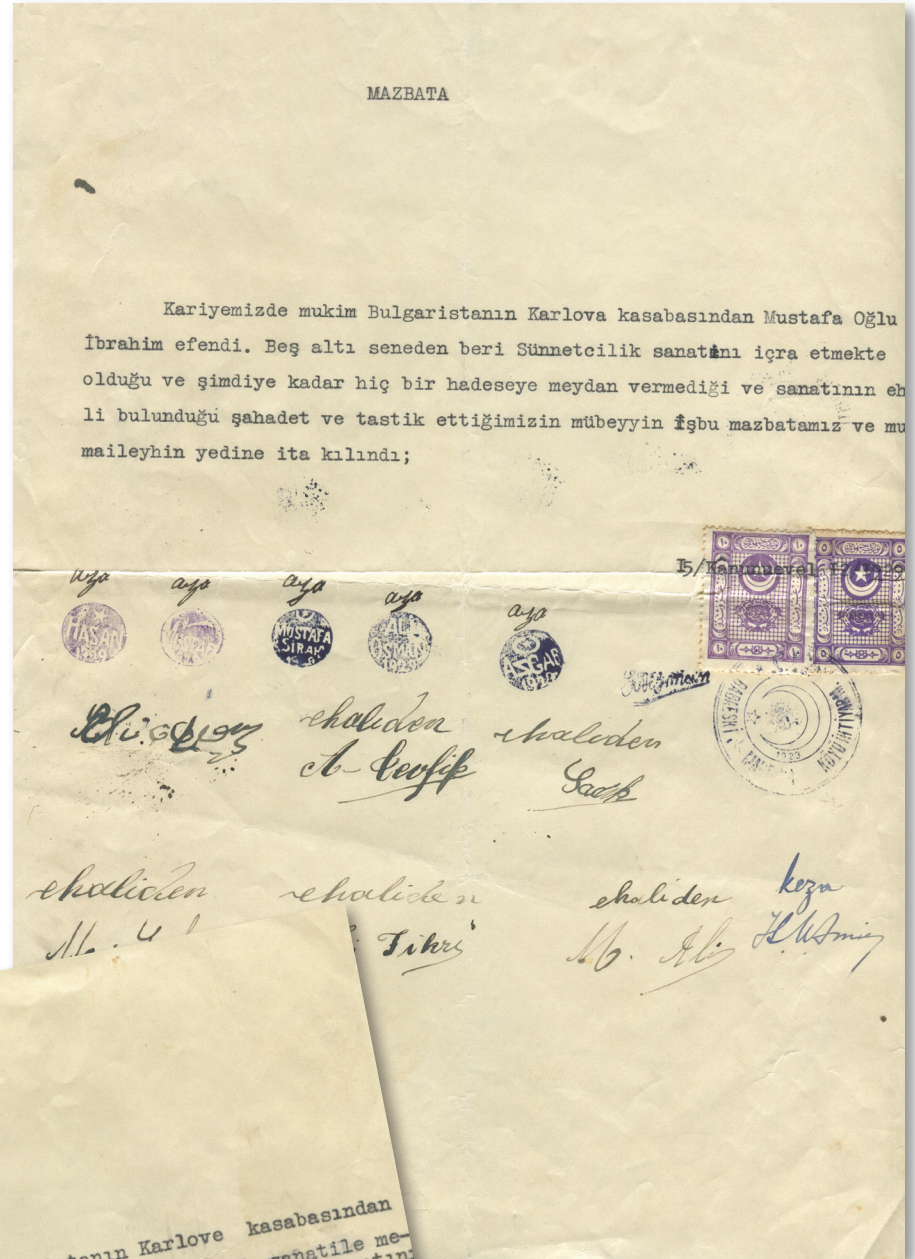 MAZBATA
Kariyemizde mukim Bulgaristanın Karlova kasabasından Mustafa Oğlu
İbrahim efendi. Beş altı seneden beri Sünnetcilik sanatını içra etmekte
olduğu ve şimdiye kadar hiç bir hadeseye meydan vermediği ve sanatının eh
li bulunduğu şahadet ve tastik ettiğimizin mübeyyin işbu mazbatamız ve mu
maileyhin yedine ita kılındı;
15/Kanunuevel 1929
aza aza aza aza aza
HASAN 1929
MUSTAFA SIRAK
ALİ OSMAN 1929
ASGAR 1929
1929 KÖYÜ İHTİYAR
ehaliden ehaliden
A- Tevfik
ehaliden ehaliden ehaliden keza
M. Fikri M. Ali
tanın Karlove kasabasından
sanatile me-